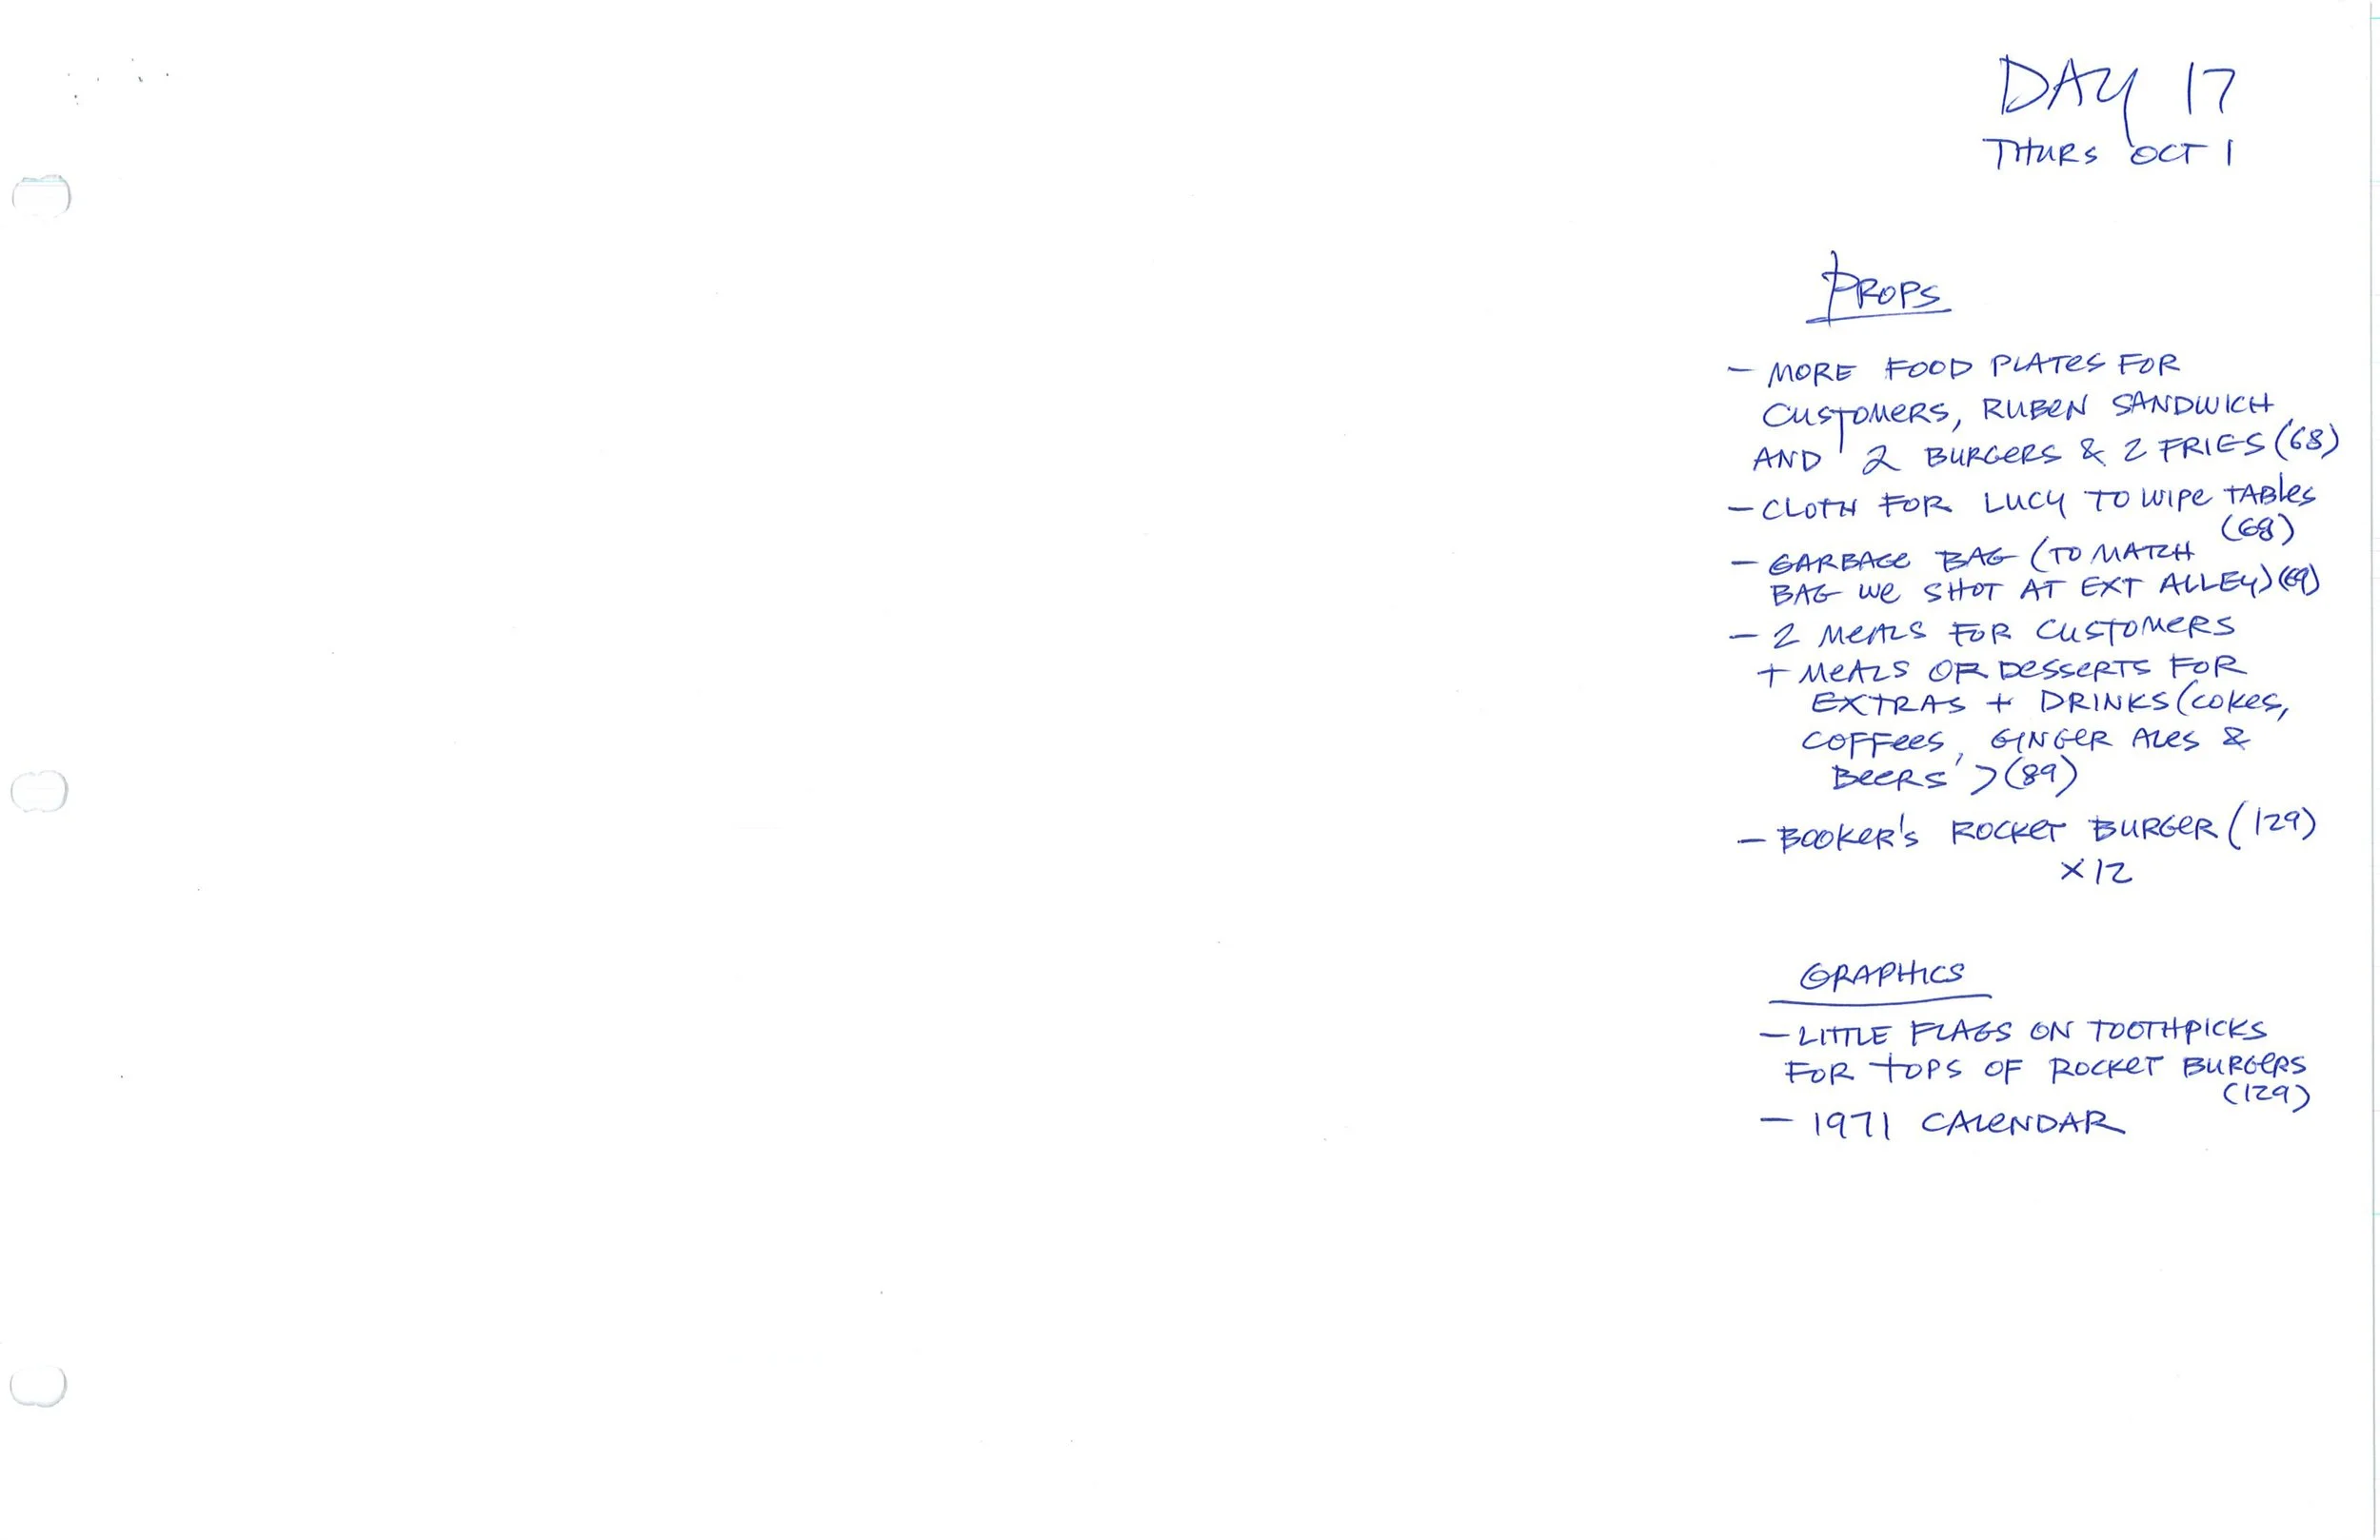 DAY 17
THURS OCT 1
PROPS
- MORE FOOD PLATES FOR
CUSTOMERS, RUBEN SANDWICH
AND 2 BURGERS & 2 FRIES (68)
- CLOTH FOR LUCY TO WIPE TABLES
(68)
- GARBAGE BAG (TO MATCH
BAG WE SHOT AT EXT ALLEY) (69)
- 2 MEALS FOR CUSTOMERS
+ MEALS OR DESSERTS FOR
EXTRAS + DRINKS (COKES,
COFFEES, GINGER ALES &
BEERS') (89)
- BOOKER'S ROCKET BURGER (129)
X 12
GRAPHICS
- LITTLE FLAGS ON TOOTHPICKS
FOR TOPS OF ROCKET BURGERS
(129)
- 1971 CALENDAR